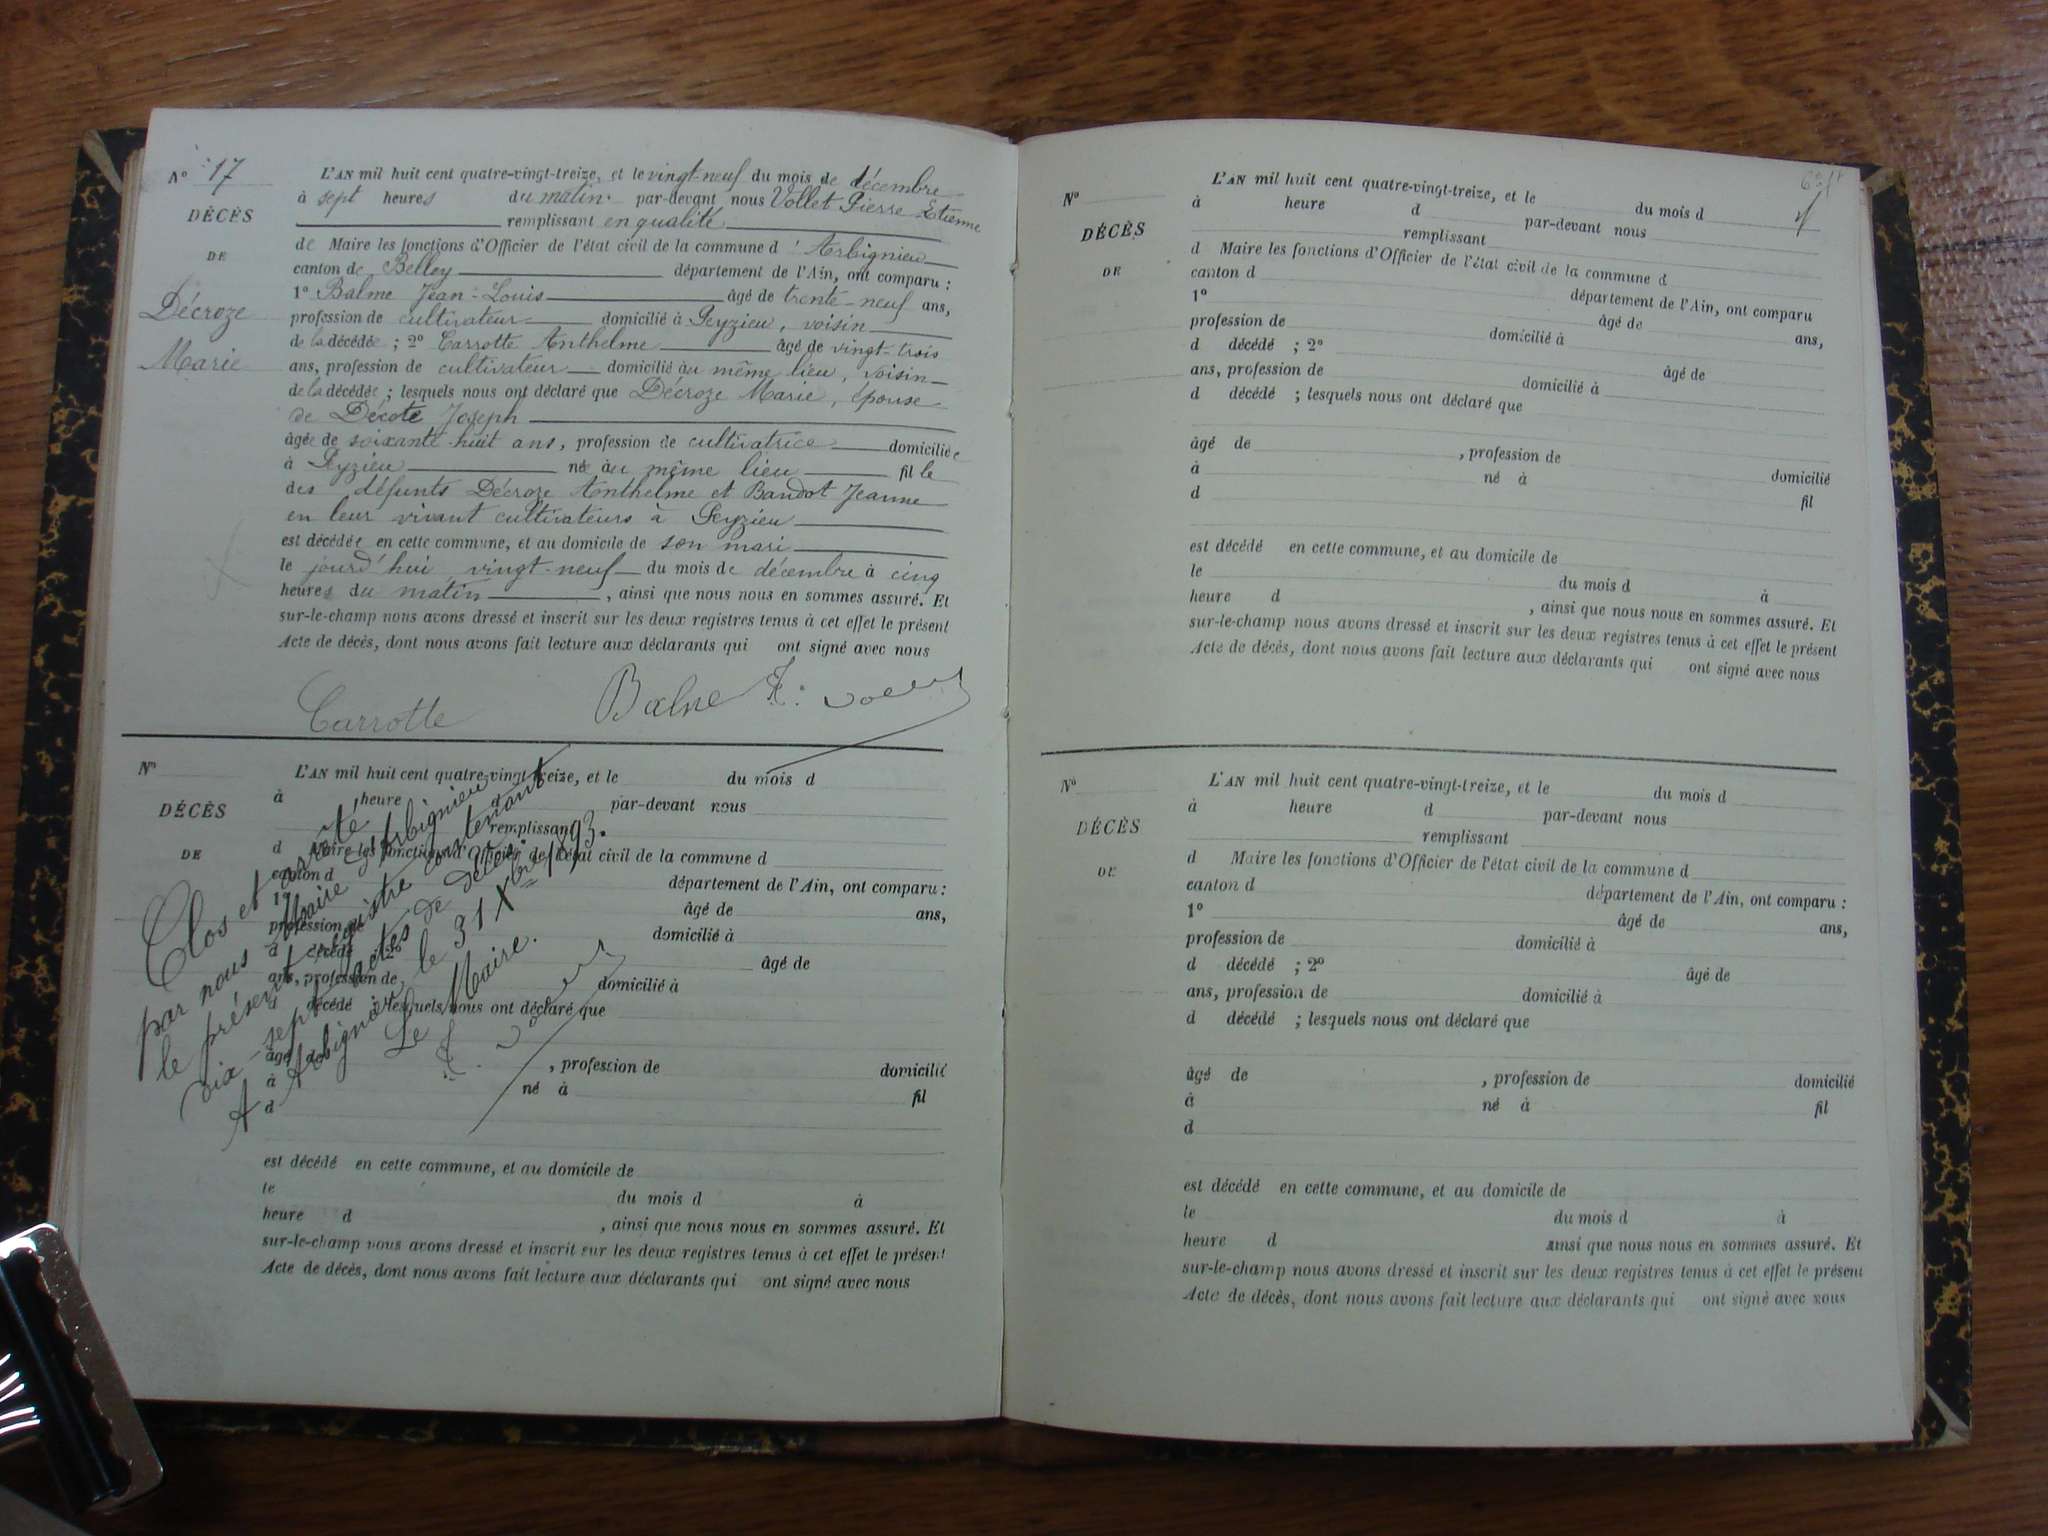 N° 17
DÉCÈS
DE
Décroze
Marie
L'AN mil huit cent quatre-vingt-treize, et le vingt-neuf du mois de décembre
à sept heures du matin par-devant nous Vollet Pierre Etienne
remplissant en qualité
de Maire les fonctions d'Officier de l'état civil de la commune d'Arbignieu
canton de Belley département de l'Ain, ont comparu :
1° Balme Jean-Louis âgé de trente-neuf ans,
profession de cultivateur domicilié à Peyzieu, voisin
de la décédée ; 2° Carrotte Anthelme âgé de vingt-trois
ans, profession de cultivateur domicilié au même lieu, voisin
de la décédée ; lesquels nous ont déclaré que Décroze Marie, épouse
de Décote Joseph
âgée de soixante-huit ans, profession de cultivatrice domiciliée
à Peyzieu né au même lieu fille
des défunts Décroze Anthelme et Baudot Jeanne
en leur vivant cultivateurs à Peyzieu
est décédée en cette commune, et au domicile de son mari
le jourd'hui vingt-neuf du mois de décembre à cinq
heures du matin, ainsi que nous nous en sommes assuré. Et
sur-le-champ nous avons dressé et inscrit sur les deux registres tenus à cet effet le présent
Acte de décès, dont nous avons fait lecture aux déclarants qui ont signé avec nous
Carrotte Balme
N°
DÉCÈS
DE
L'AN mil huit cent quatre-vingt-treize, et le du mois d
à heure d par-devant nous
remplissant
d Maire les fonctions d'Officier de l'état civil de la commune d
canton d département de l'Ain, ont comparu :
1° âgé de ans,
profession de domicilié à
d décédé ; 2° âgé de
ans, profession de domicilié à
d décédé ; lesquels nous ont déclaré que
âgé de , profession de domicilié
à né à fil
d
est décédé en cette commune, et au domicile de
le du mois d à
heure d , ainsi que nous nous en sommes assuré. Et
sur-le-champ nous avons dressé et inscrit sur les deux registres tenus à cet effet le présent
Acte de décès, dont nous avons fait lecture aux déclarants qui ont signé avec nous
Clos et arrêté
par nous Maire d'Arbignieu
le présent registre contenant
dix-sept actes de décès.
A Arbignieu, le 31 Xbre 1893.
Le Maire.
N°
DÉCÈS
DE
L'AN mil huit cent quatre-vingt-treize, et le du mois d
à heure d par-devant nous
remplissant
d Maire les fonctions d'Officier de l'état civil de la commune d
canton d département de l'Ain, ont comparu
1° âgé de ans,
profession de domicilié à
d décédé ; 2° âgé de
ans, profession de domicilié à
d décédé ; lesquels nous ont déclaré que
âgé de , profession de domicilié
à né à fil
d
est décédé en cette commune, et au domicile de
le du mois d à
heure d , ainsi que nous nous en sommes assuré. Et
sur-le-champ nous avons dressé et inscrit sur les deux registres tenus à cet effet le présent
Acte de décès, dont nous avons fait lecture aux déclarants qui ont signé avec nous
N°
DÉCÈS
DE
L'AN mil huit cent quatre-vingt-treize, et le du mois d
à heure d par-devant nous
remplissant
d Maire les fonctions d'Officier de l'état civil de la commune d
canton d département de l'Ain, ont comparu :
1° âgé de ans,
profession de domicilié à
d décédé ; 2° âgé de
ans, profession de domicilié à
d décédé ; lesquels nous ont déclaré que
âgé de , profession de domicilié
à né à fil
d
est décédé en cette commune, et au domicile de
le du mois d à
heure d ainsi que nous nous en sommes assuré. Et
sur-le-champ nous avons dressé et inscrit sur les deux registres tenus à cet effet le présent
Acte de décès, dont nous avons fait lecture aux déclarants qui ont signé avec nous